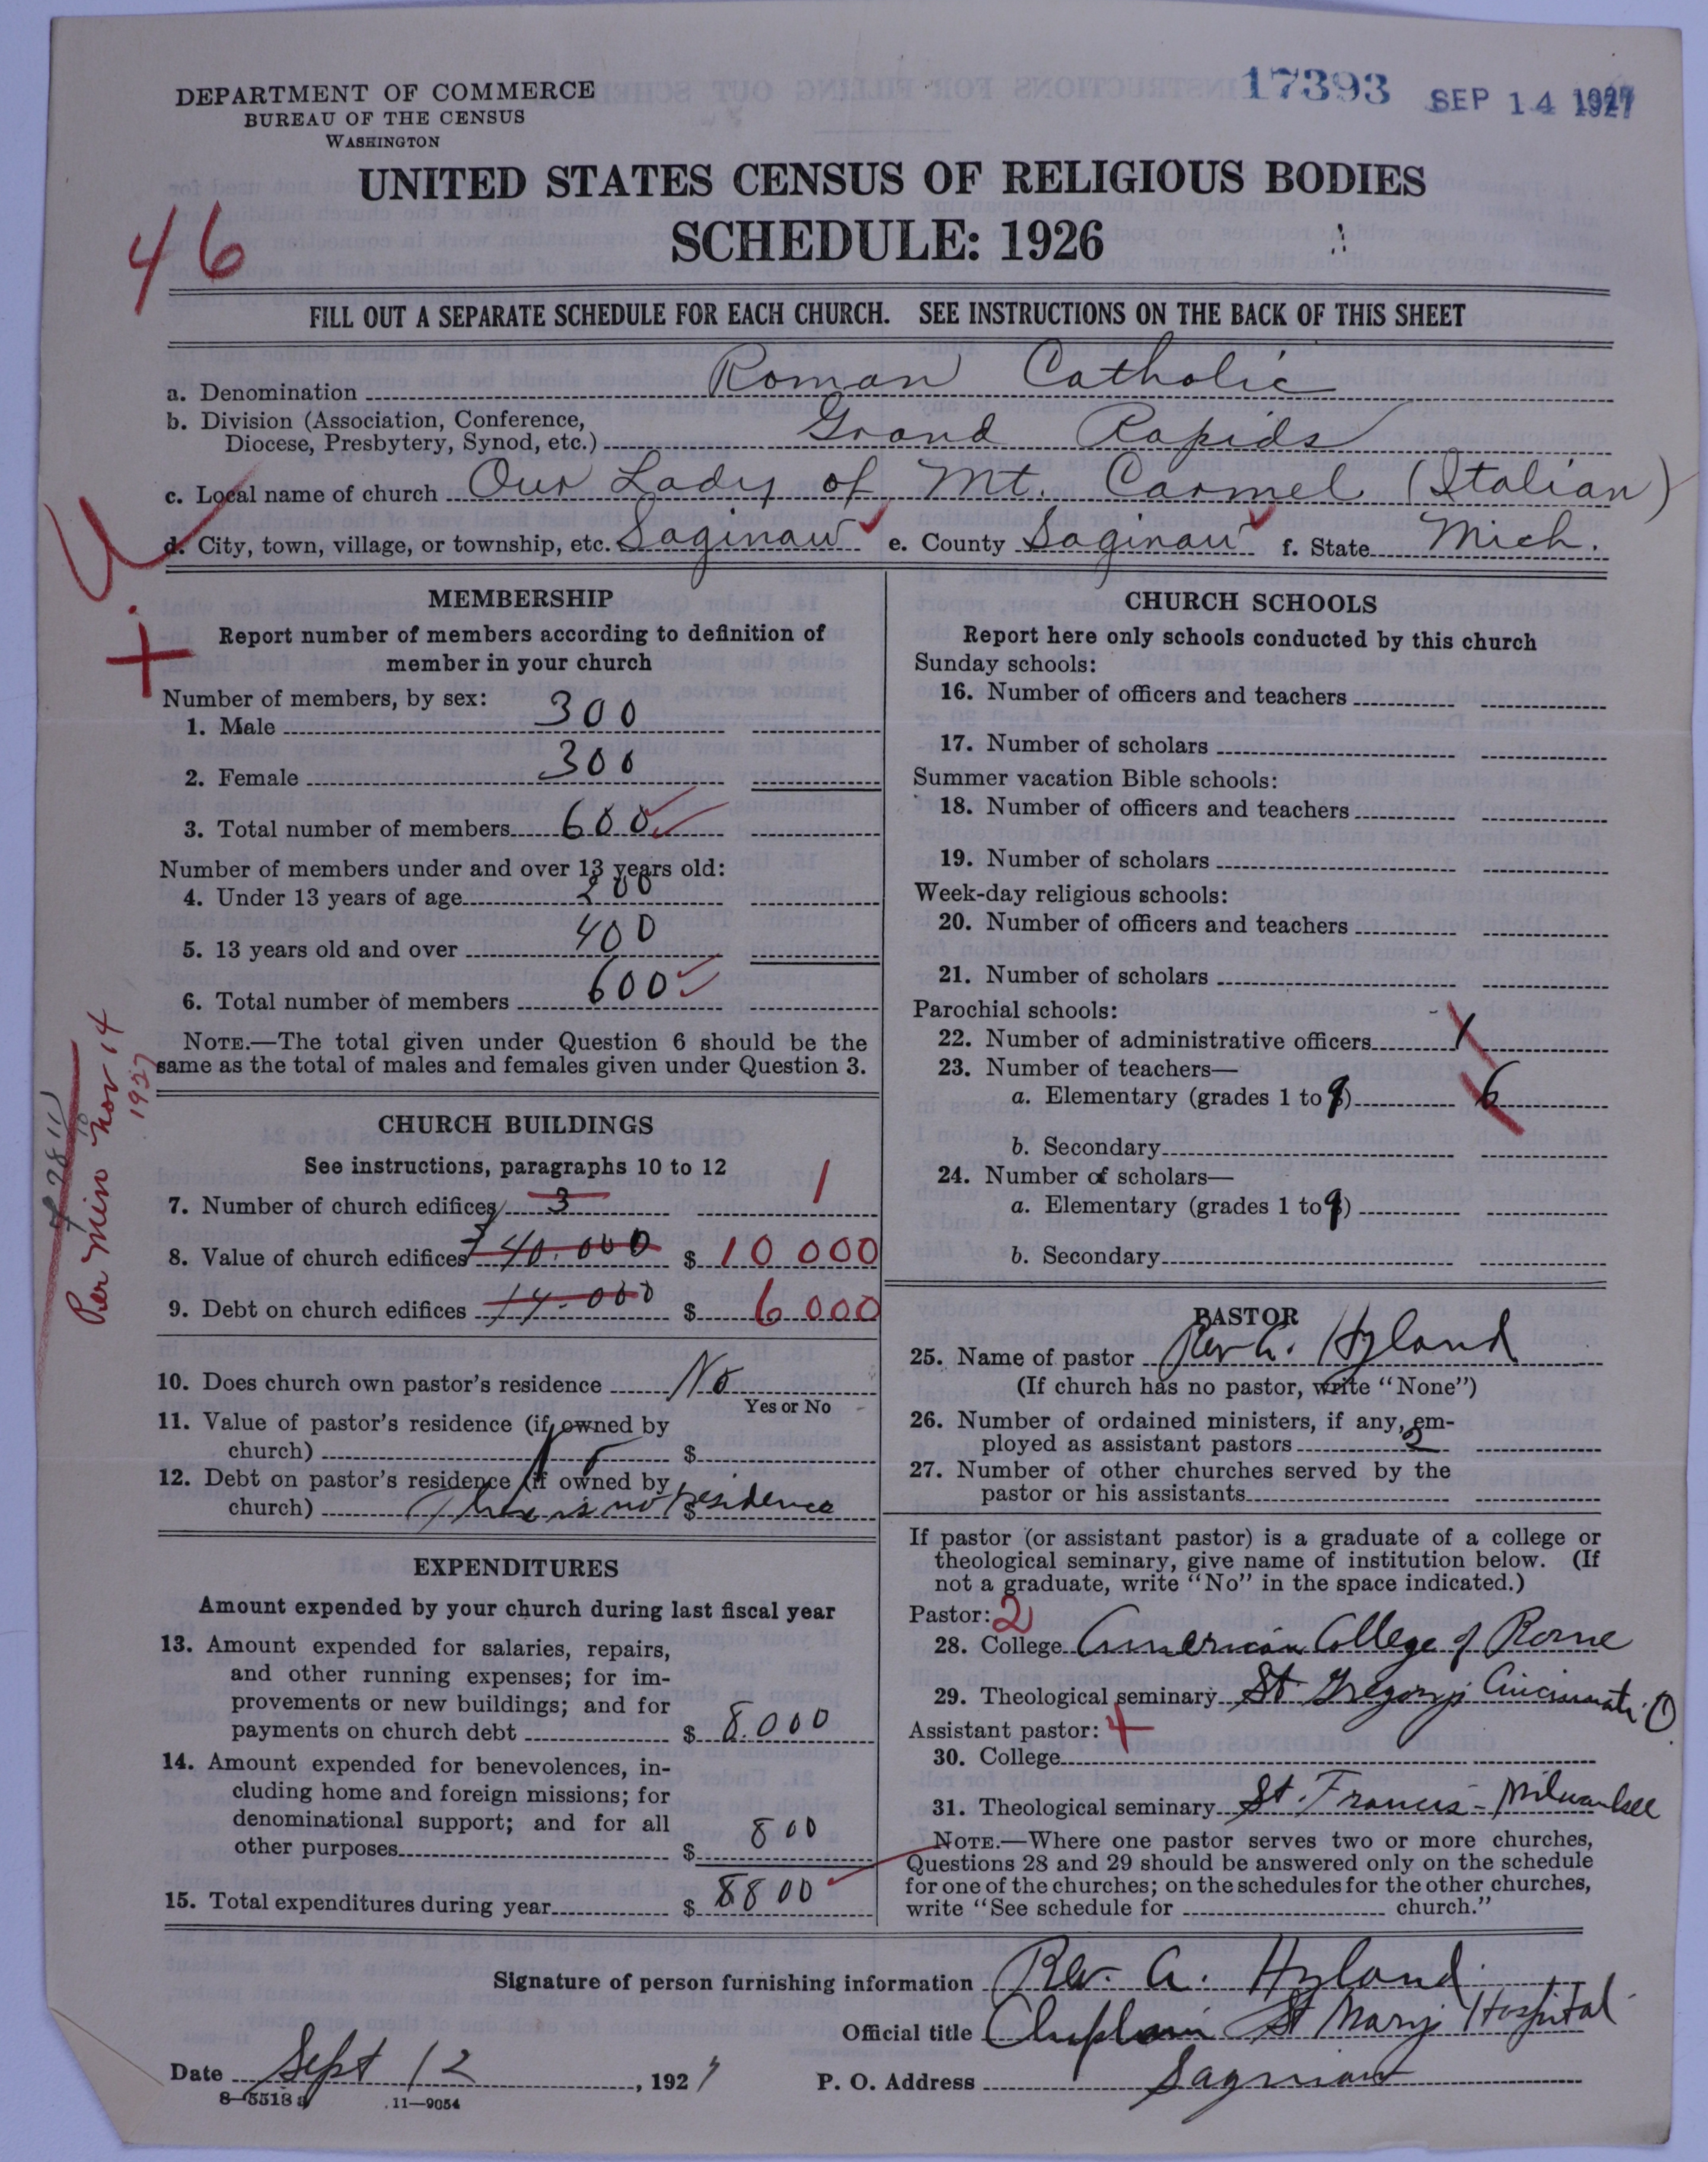 17393 SEP 14 1927
DEPARTMENT OF COMMERCE
BUREAU OF THE CENSUS
WASHINGTON
UNITED STATES CENSUS OF RELIGIOUS BODIES
SCHEDULE: 1926
46
FILL OUT A SEPARATE SCHEDULE FOR EACH CHURCH. SEE INSTRUCTIONS ON THE BACK OF THIS SHEET
a. Denomination Roman Catholic
b. Division (Association, Conference,
Diocese, Presbytery, Synod, etc.) Grand Rapids
c. Local name of church Our Lady of Mt. Carmel (Italian)
d. City, town, village, or township, etc. Saginaw e. County Saginaw f. State Mich.
MEMBERSHIP
Report number of members according to definition of
member in your church
Number of members, by sex:
1. Male 300
2. Female 300
3. Total number of members 600
Number of members under and over 13 years old:
4. Under 13 years of age 200
5. 13 years old and over 400
6. Total number of members 600
NOTE.—The total given under Question 6 should be the
same as the total of males and females given under Question 3.
Per Min Nov 14
1927
CHURCH BUILDINGS
See instructions, paragraphs 10 to 12
7. Number of church edifices 3 1
8. Value of church edifices 40.000 $ 10 000
9. Debt on church edifices 14.000 $ 6 000
10. Does church own pastor's residence No
Yes or No
11. Value of pastor's residence (if owned by
church) $
12. Debt on pastor's residence (if owned by
church) There is no residence $
EXPENDITURES
Amount expended by your church during last fiscal year
13. Amount expended for salaries, repairs,
and other running expenses; for im-
provements or new buildings; and for
payments on church debt $ 8.000
14. Amount expended for benevolences, in-
cluding home and foreign missions; for
denominational support; and for all
other purposes $ 800
15. Total expenditures during year $ 8800
CHURCH SCHOOLS
Report here only schools conducted by this church
Sunday schools:
16. Number of officers and teachers
17. Number of scholars
Summer vacation Bible schools:
18. Number of officers and teachers
19. Number of scholars
Week-day religious schools:
20. Number of officers and teachers
21. Number of scholars
Parochial schools:
22. Number of administrative officers 1
23. Number of teachers—
a. Elementary (grades 1 to 9) 6
b. Secondary
24. Number of scholars—
a. Elementary (grades 1 to 9)
b. Secondary
PASTOR
25. Name of pastor Rev A. Hyland
(If church has no pastor, write "None")
26. Number of ordained ministers, if any, em-
ployed as assistant pastors 2
27. Number of other churches served by the
pastor or his assistants
If pastor (or assistant pastor) is a graduate of a college or
theological seminary, give name of institution below. (If
not a graduate, write "No" in the space indicated.)
Pastor: 2
28. College American College of Rome
29. Theological seminary St Gregory's Cincinnati. O
Assistant pastor: 4
30. College
31. Theological seminary St. Francis - Milwaukee
NOTE.—Where one pastor serves two or more churches,
Questions 28 and 29 should be answered only on the schedule
for one of the churches; on the schedules for the other churches,
write "See schedule for church."
Signature of person furnishing information Rev. A. Hyland
Official title Chaplain St Marys Hospital
Date Sept 12, 1927 P. O. Address Saginaw
8—5518 a 11—9054